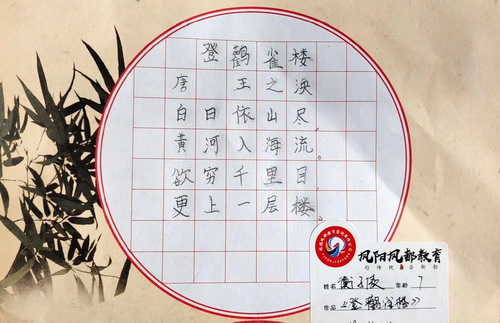 登鹳雀楼
唐 王之涣
白日依山尽,
黄河入海流。
欲穷千里目
更上一层楼。
凤阳凤都教育
姓名 年龄 7
作品 《登鹳雀楼》